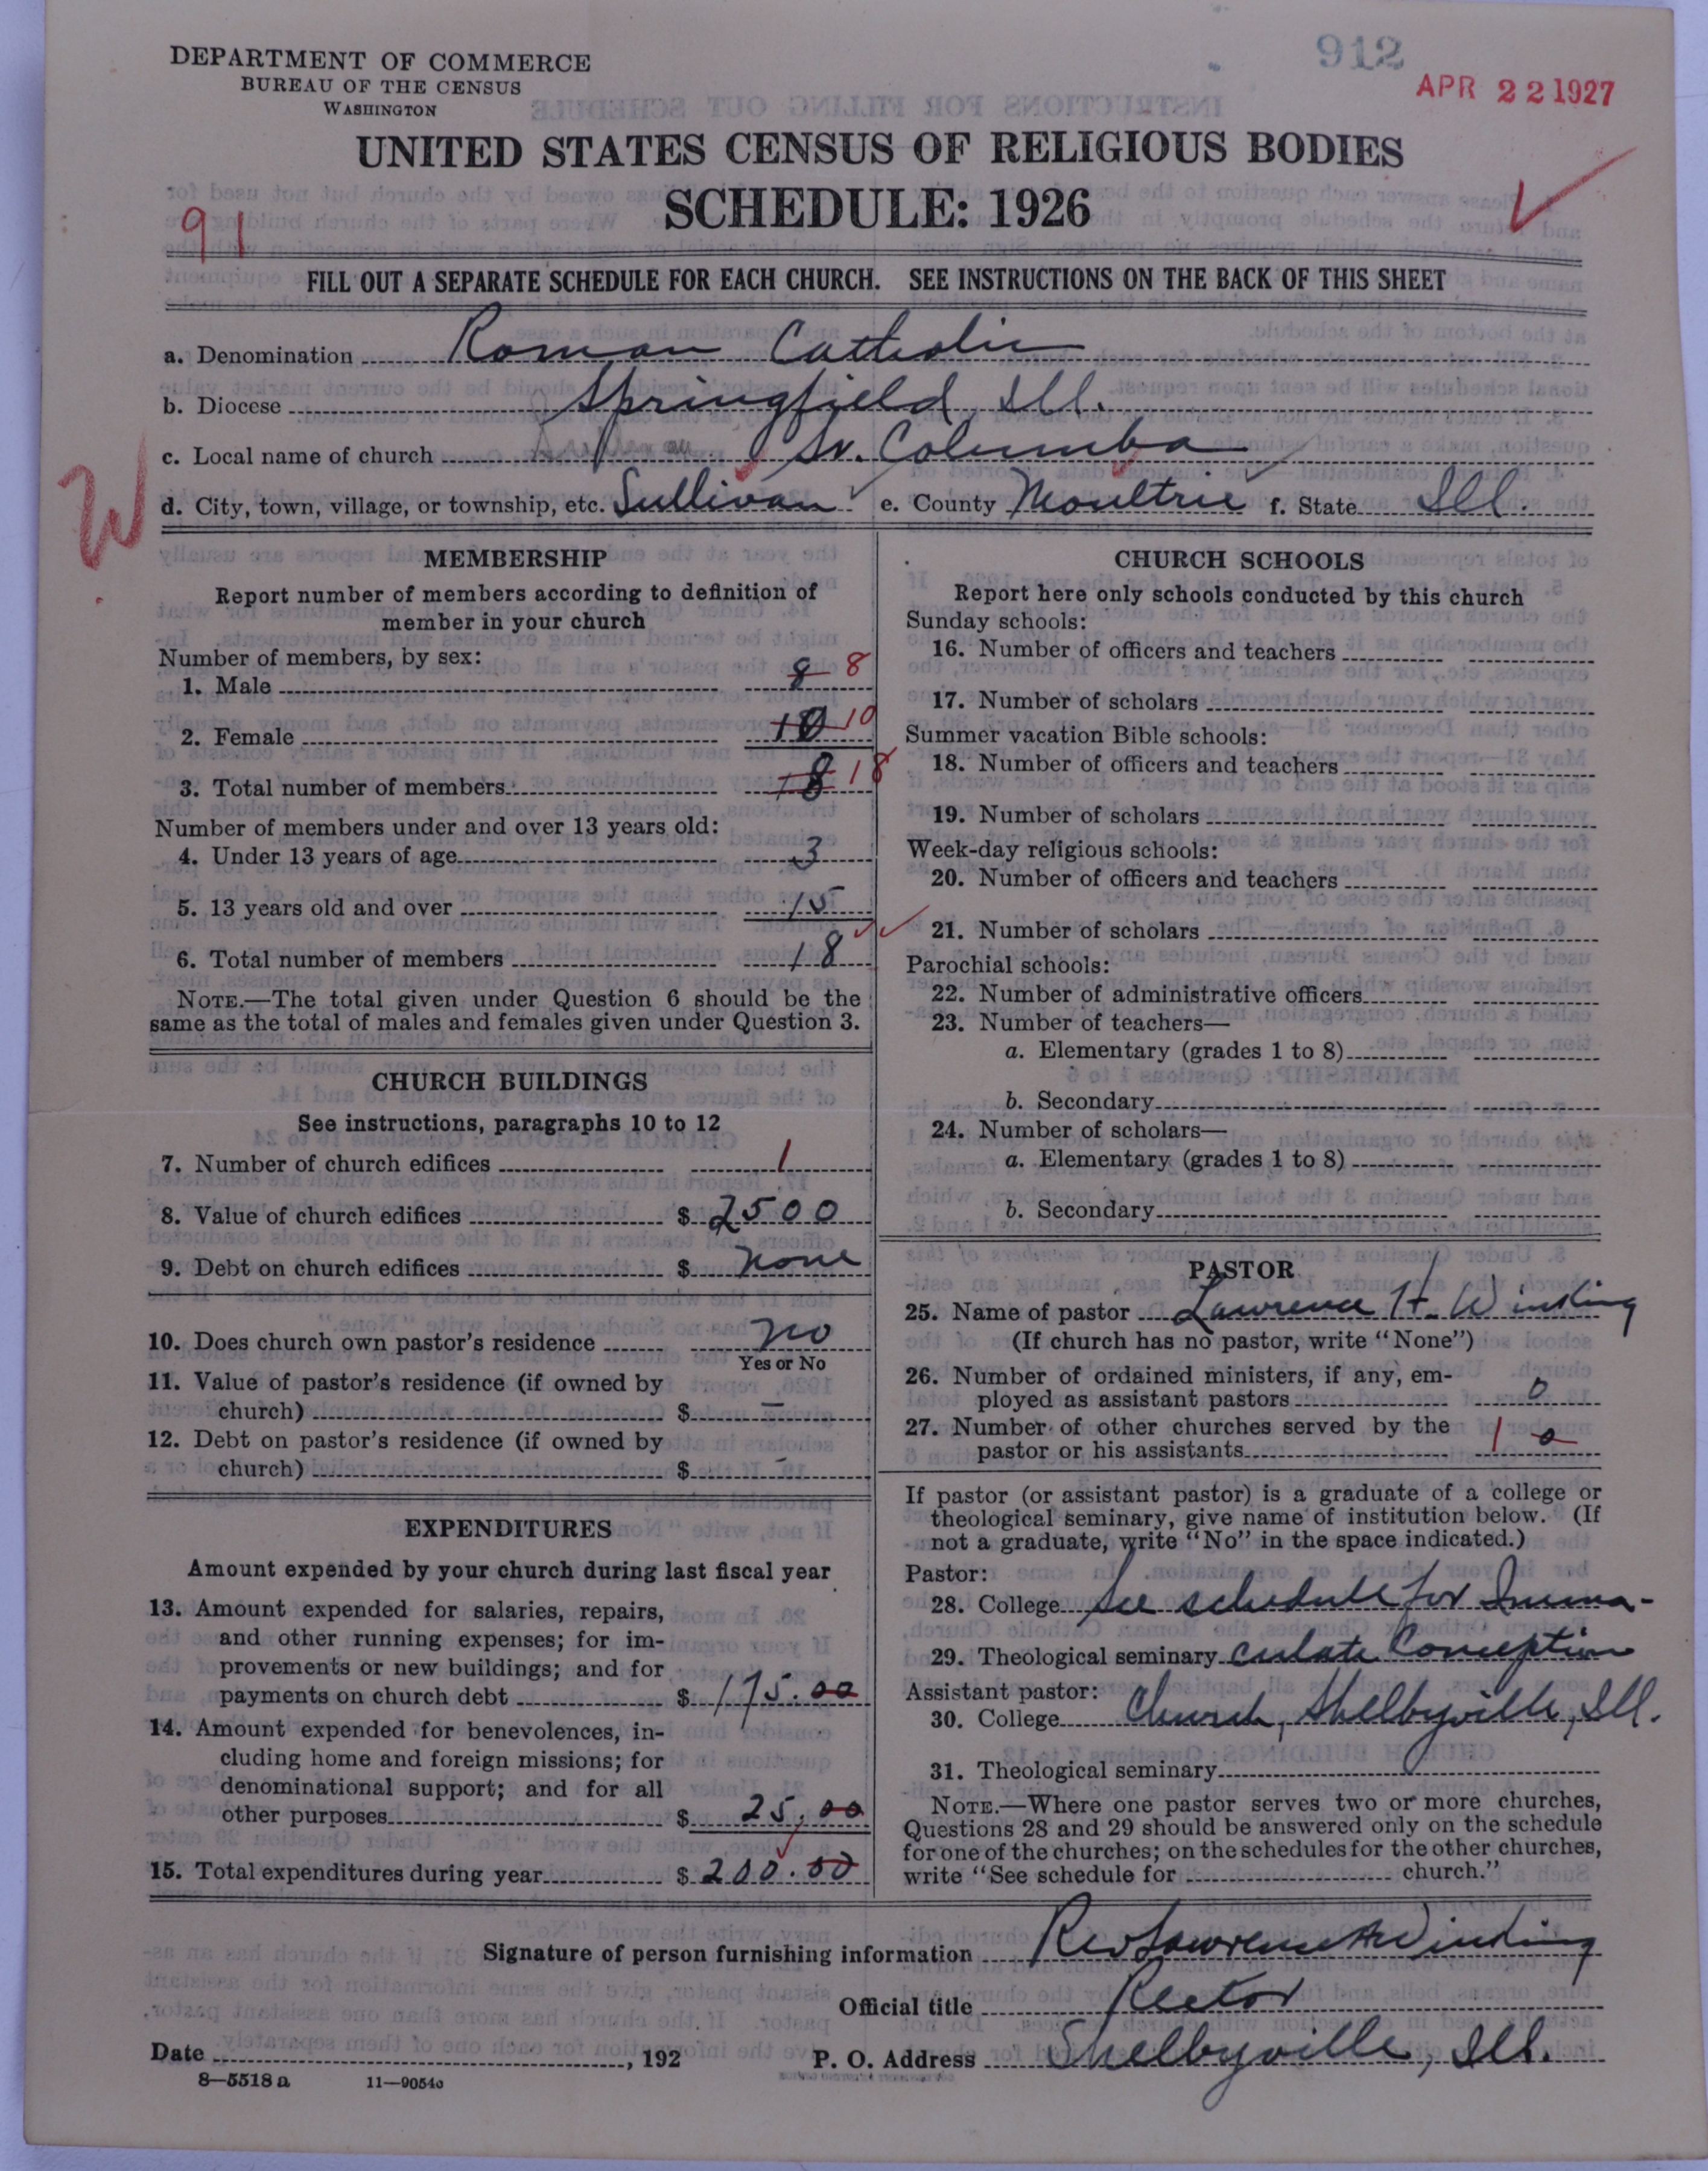 DEPARTMENT OF COMMERCE
BUREAU OF THE CENSUS
WASHINGTON
912
APR 22 1927
UNITED STATES CENSUS OF RELIGIOUS BODIES
SCHEDULE: 1926
91
FILL OUT A SEPARATE SCHEDULE FOR EACH CHURCH. SEE INSTRUCTIONS ON THE BACK OF THIS SHEET
a. Denomination Roman Catholic
b. Diocese Springfield, Ill.
c. Local name of church St. Columba
W
d. City, town, village, or township, etc. Sullivan e. County Moultrie f. State Ill.
MEMBERSHIP
Report number of members according to definition of
member in your church
Number of members, by sex:
1. Male 8 8
2. Female 10 10
3. Total number of members 18 18
Number of members under and over 13 years old:
4. Under 13 years of age 3
5. 13 years old and over 15
6. Total number of members 18
NOTE.—The total given under Question 6 should be the
same as the total of males and females given under Question 3.
CHURCH BUILDINGS
See instructions, paragraphs 10 to 12
7. Number of church edifices 1
8. Value of church edifices $ 2500
9. Debt on church edifices $ none
10. Does church own pastor's residence no
Yes or No
11. Value of pastor's residence (if owned by
church) $ –
12. Debt on pastor's residence (if owned by
church) $ –
EXPENDITURES
Amount expended by your church during last fiscal year
13. Amount expended for salaries, repairs,
and other running expenses; for im-
provements or new buildings; and for
payments on church debt $ 175.00
14. Amount expended for benevolences, in-
cluding home and foreign missions; for
denominational support; and for all
other purposes $ 25.00
15. Total expenditures during year $ 200.00
CHURCH SCHOOLS
Report here only schools conducted by this church
Sunday schools:
16. Number of officers and teachers
17. Number of scholars
Summer vacation Bible schools:
18. Number of officers and teachers
19. Number of scholars
Week-day religious schools:
20. Number of officers and teachers
21. Number of scholars
Parochial schools:
22. Number of administrative officers
23. Number of teachers—
a. Elementary (grades 1 to 8)
b. Secondary
24. Number of scholars—
a. Elementary (grades 1 to 8)
b. Secondary
PASTOR
25. Name of pastor Lawrence H. Winking
(If church has no pastor, write "None")
26. Number of ordained ministers, if any, em-
ployed as assistant pastors 0
27. Number of other churches served by the
pastor or his assistants 1 0
If pastor (or assistant pastor) is a graduate of a college or
theological seminary, give name of institution below. (If
not a graduate, write "No" in the space indicated.)
Pastor:
28. College See schedule for Imma-
29. Theological seminary culate Conception
Assistant pastor:
30. College Church, Shelbyville, Ill.
31. Theological seminary
NOTE.—Where one pastor serves two or more churches,
Questions 28 and 29 should be answered only on the schedule
for one of the churches; on the schedules for the other churches,
write "See schedule for church."
Signature of person furnishing information Rev Lawrence H Winking
Official title Rector
Date , 192 P. O. Address Shelbyville, Ill.
8—5518 a 11—9054c